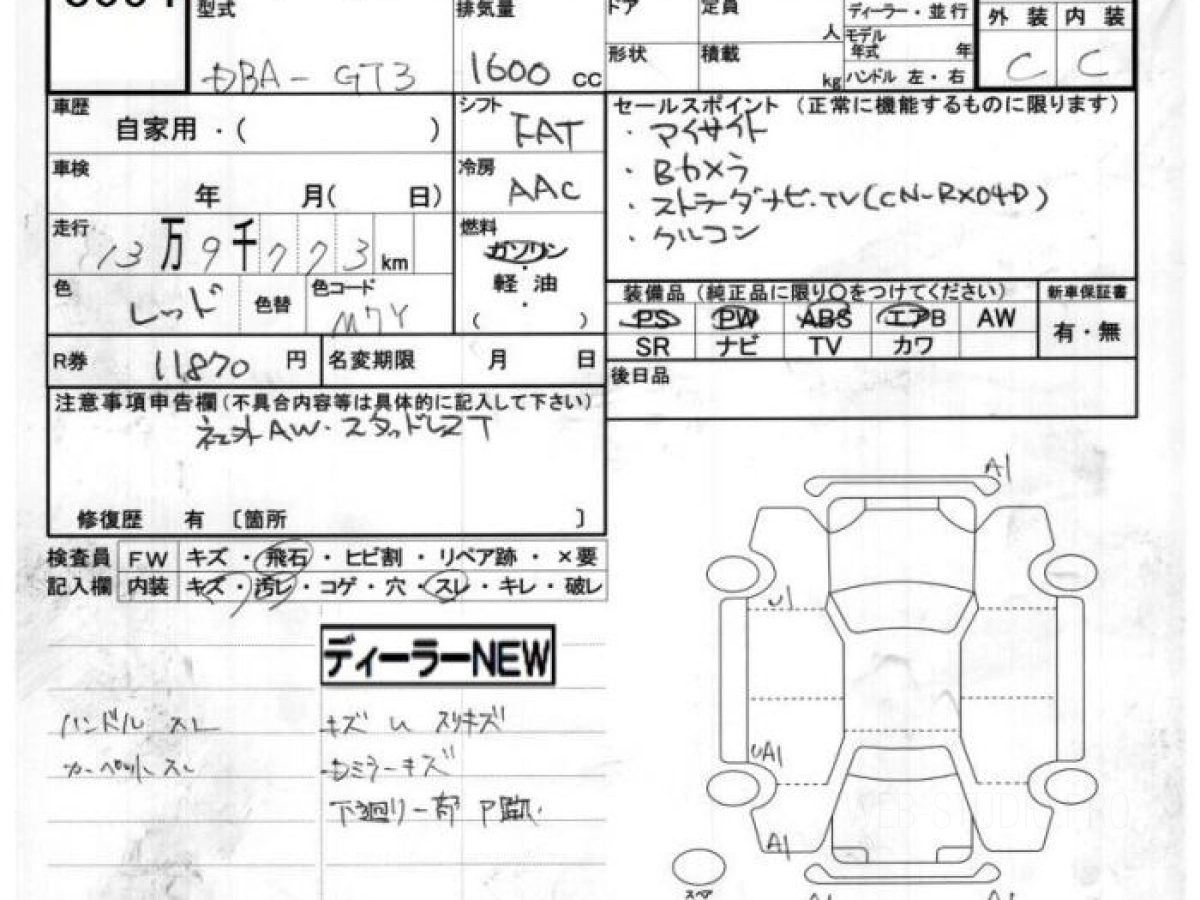 型式 排気量 ドア 定員 人 ディーラー・並行 外装 内装
DBA-GT3 1600 cc 形状 積載 kg モデル年式 年 C C
ハンドル 左・右
車歴 自家用・( ) シフト FAT
車検 年 月( 日) 冷房 AAC
走行 13万9千773km 燃料 ガソリン
軽油
( )
色 レッド 色替 色コード M7Y
R券 11870 円 名変期限 月 日
セールスポイント (正常に機能するものに限ります)
・マイサイト
・Bカメラ
・ストラーダナビ・TV(CN-RX04D)
・クルコン
装備品 (純正品に限り○をつけてください) 新車保証書
PS PW ABS エアB AW 有・無
SR ナビ TV カワ
後日品
注意事項申告欄(不具合内容等は具体的に記入して下さい)
社外AW・スタッドレスT
修復歴 有 〔箇所 〕
検査員 FW キズ・飛石・ヒビ割・リペア跡・×要
記入欄 内装 キズ・汚レ・コゲ・穴・スレ・キレ・破レ
ディーラーNEW
ハンドル スレ キズ U スリキズ
カーペット スレ Dミラーキズ
下廻り一部
A1
U1
UA1
A1
スペア
WEB-STUDIO.PRO